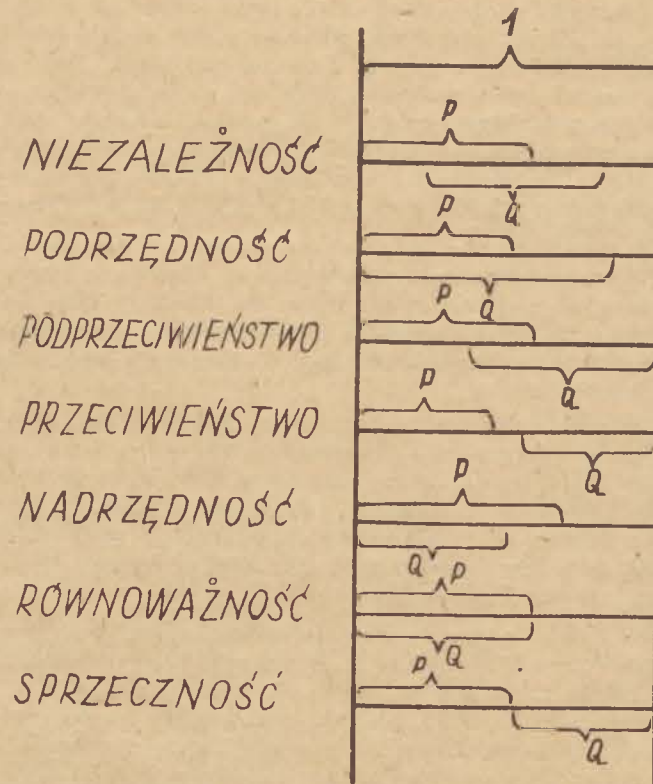 1
P
NIEZALEŻNOŚĆ
Q
P
PODRZĘDNOŚĆ
Q
P
PODPRZECIWIEŃSTWO
Q
P
PRZECIWIEŃSTWO
Q
P
NADRZĘDNOŚĆ
Q P
RÓWNOWAŻNOŚĆ
Q
P
SPRZECZNOŚĆ
Q